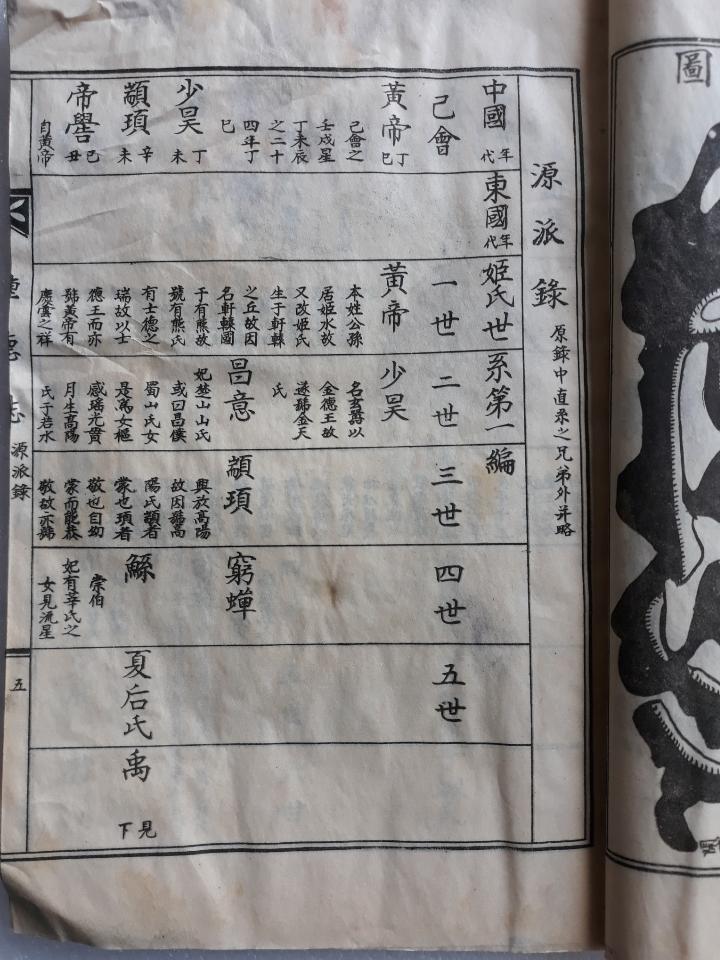 圖
源派錄
原錄中直系之兄弟外并略
中國年代
己會
黃帝丁巳
己會之
壬戌星
丁未辰
之二十
四年丁
巳
少昊丁未
顓頊辛未
帝嚳己丑
自黃帝
東國年代
姬氏世系第一編
一世
黃帝
本姓公孫
居姬水故
又改姬氏
生于軒轅
之丘故因
名軒轅國
于有熊故
號有熊氏
有土德之
瑞故以土
德王而亦
號黃帝有
慶雲之祥
二世
少昊
名玄囂以
金德王故
遂號金天
氏
昌意
妃楚山山氏
或曰昌僕
蜀山氏女
是為女樞
感瑤光貫
月生高陽
氏于若水
三世
顓頊
興放高陽
故因號高
陽氏顓者
蒙也頊者
敬也自幼
蒙而能恭
敬故亦號
四世
窮蟬
鯀
崇伯
妃有莘氏之
女見流星
五世
夏后氏
禹
見下
源派錄
五